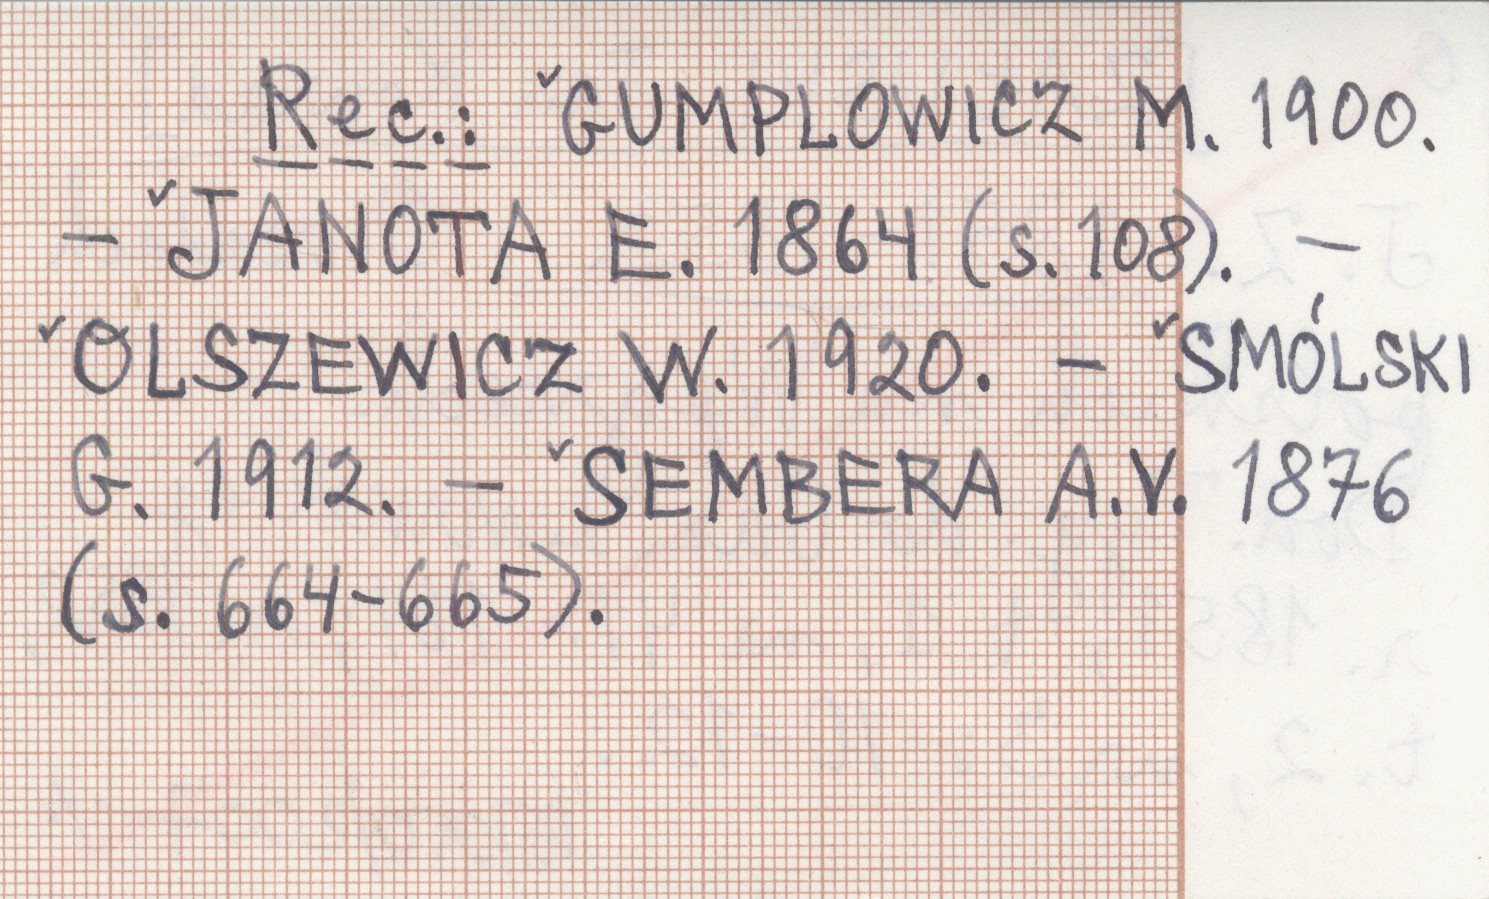 Rec.: ˇGUMPLOWICZ M. 1900.
– ˇJANOTA E. 1864 (s. 108). –
ˇOLSZEWICZ W. 1920. – ˇSMÓLSKI
G. 1912. – ˇSEMBERA A.V. 1876
(s. 664-665).